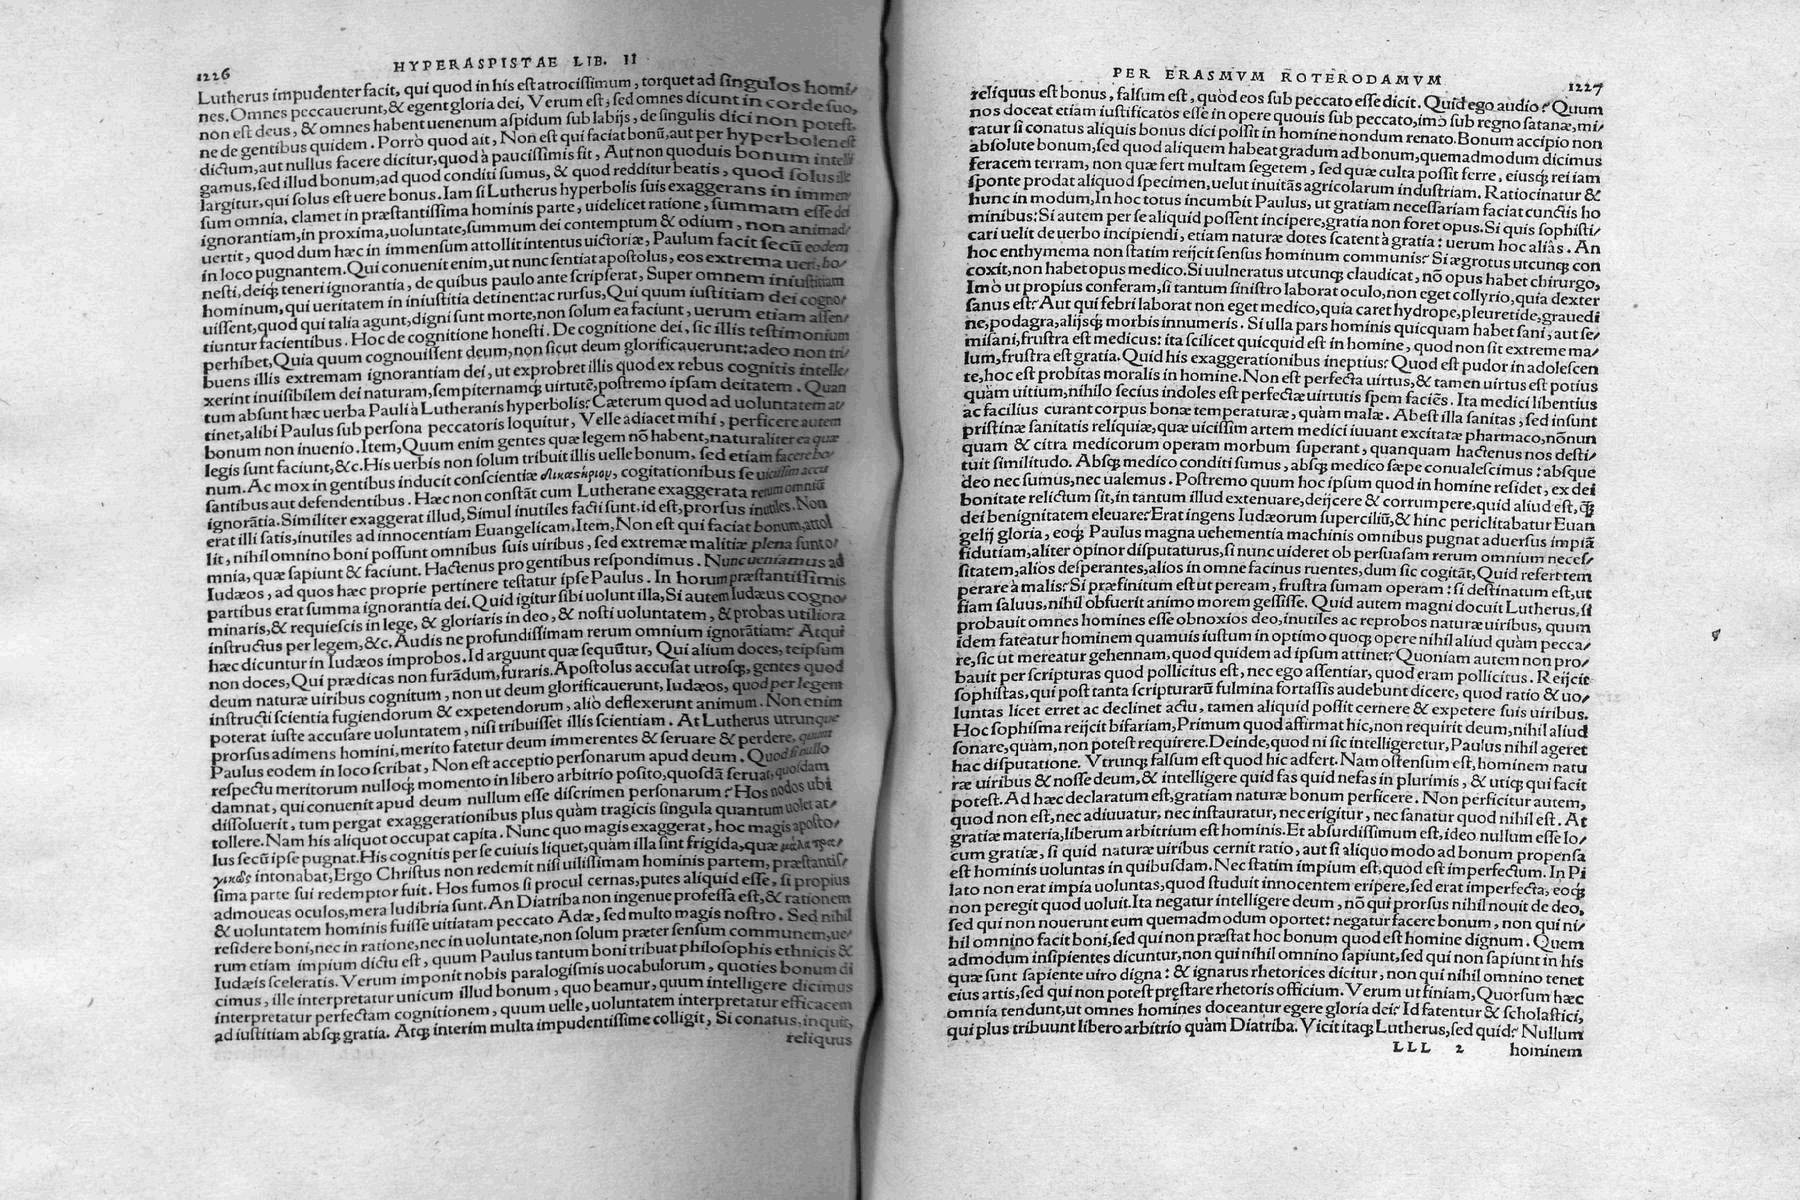 1226 HYPERASPISTAE LIB. II
Lutherus impudenter facit, qui quod in his est atrocissimum, torquet ad singulos homi⸗
nes. Omnes peccauerunt, & egent gloria dei, Verum est, sed omnes dicunt in corde suo,
non est deus, & omnes habent uenenum aspidum sub labijs, de singulis dici non potest,
ne de gentibus quidem. Porrò quod ait, Non est qui faciat bonū, aut per hyperbolen est
dictum, aut nullus facere dicitur, quod à paucissimis fit, Aut non quoduis bonum intelli
gamus, sed illud bonum, ad quod conditi sumus, & quod redditur beatis, quod solus ille
largitur, qui solus est uere bonus. Iam si Lutherus hyperbolis suis exaggerans in immen
sum omnia, clamet in præstantissima hominis parte, uidelicet ratione, summam esse dei
ignorantiam, in proxima, uoluntate, summum dei contemptum & odium, non animad⸗
uertit, quod dum hæc in immensum attollit intentus uictoriæ, Paulum facit secū eodem
in loco pugnantem. Qui conuenit enim, ut nunc sentiat apostolus, eos extrema ueri, ho⸗
nesti, deiq́; teneri ignorantia, de quibus paulo ante scripserat, Super omnem iniustitiam
hominum, qui ueritatem in iniustitia detinent: ac rursus, Qui quum iustitiam dei cogno⸗
uissent, quod qui talia agunt, digni sunt morte, non solum ea faciunt, uerum etiam assen⸗
tiuntur facientibus. Hoc de cognitione honesti. De cognitione dei, sic illis testimonium
perhibet, Quia quum cognouissent deum, non sicut deum glorificauerunt: adeo non tri⸗
buens illis extremam ignorantiam dei, ut exprobret illis quod ex rebus cognitis intelle⸗
xerint inuisibilem dei naturam, sempiternamq; uirtutē, postremo ipsam deitatem. Quan
tum absunt hæc uerba Pauli à Lutheranis hyperbolis? Cæterum quod ad uoluntatem at⸗
tinet, alibi Paulus sub persona peccatoris loquitur, Velle adiacet mihi, perficere autem
bonum non inuenio. Item, Quum enim gentes quæ legem nō habent, naturaliter ea quæ
legis sunt faciunt, &c. His uerbis non solum tribuit illis uelle bonum, sed etiam facere bo⸗
num. Ac mox in gentibus inducit conscientiæ δικαστήριον, cogitationibus se uicissim accu
santibus aut defendentibus. Hæc non constāt cum Lutherane exaggerata rerum omniū
ignorātia. Similiter exaggerat illud, Simul inutiles facti sunt. id est, prorsus inutiles. Non
erat illi satis, inutiles ad innocentiam Euangelicam. Item, Non est qui faciat bonum, attol
lit, nihil omnino boni possunt omnibus suis uiribus, sed extremæ malitiæ plena sunt o⸗
mnia, quæ sapiunt & faciunt. Hactenus pro gentibus respondimus. Nunc ueniamus ad
Iudæos, ad quos hæc proprie pertinere testatur ipse Paulus. In horum præstantissimis
partibus erat summa ignorantia dei. Quid igitur sibi uolunt illa, Si autem Iudæus cogno⸗
minaris, & requiescis in lege, & gloriaris in deo, & nosti uoluntatem, & probas utiliora
instructus per legem, &c. Audis ne profundissimam rerum omnium ignorātiam? Atqui
hæc dicuntur in Iudæos improbos. Id arguunt quæ sequūtur, Qui alium doces, teipsum
non doces, Qui prædicas non furādum, furaris. Apostolus accusat utrosq;, gentes quod
deum naturæ uiribus cognitum, non ut deum glorificauerunt, Iudæos, quod per legem
instructi scientia fugiendorum & expetendorum, aliò deflexerunt animum. Non enim
poterat iuste accusare uoluntatem, nisi tribuisset illis scientiam. At Lutherus utrunque
prorsus adimens homini, merito fatetur deum immerentes & seruare & perdere, quum
Paulus eodem in loco scribat, Non est acceptio personarum apud deum. Quod si nullo
respectu meritorum nulloq́; momento in libero arbitrio posito, quosdā seruat, quosdam
damnat, qui conuenit apud deum nullum esse discrimen personarum? Hos nodos ubi
dissoluerit, tum pergat exaggerationibus plus quàm tragicis singula quantum uolet at⸗
tollere. Nam his aliquot occupat capita. Nunc quo magis exaggerat, hoc magis aposto⸗
lus secū ipse pugnat. His cognitis per se cuiuis liquet, quàm illa sint frigida, quæ μάλα τρα⸗
γικῶς intonabat, Ergo Christus non redemit nisi uilissimam hominis partem, præstantis⸗
sima parte sui redemptor fuit. Hos fumos si procul cernas, putes aliquid esse, si propius
admoueas oculos, mera ludibria sunt. An Diatriba non ingenue professa est, & rationem
& uoluntatem hominis fuisse uitiatam peccato Adæ, sed multo magis nostro. Sed nihil
residere boni, nec in ratione, nec in uoluntate, non solum præter sensum communem, ue⸗
rum etiam impium dictu est, quum Paulus tantum boni tribuat philosophis ethnicis &
Iudæis sceleratis. Verum imponit nobis paralogismis uocabulorum, quoties bonum di
cimus, ille interpretatur unicum illud bonum, quo beamur, quum intelligere dicimus
interpretatur perfectam cognitionem, quum uelle, uoluntatem interpretatur efficacem
ad iustitiam absq; gratia. Atq; interim multa impudentissime colligit, Si conatus, inquit,
reliquus
PER ERASMVM ROTERODAMVM 1227
reliquus est bonus, falsum est, quòd eos sub peccato esse dicit. Quid ego audio? Quum
nos doceat etiam iustificatos esse in opere quouis sub peccato, imò sub regno satanæ, mi⸗
ratur si conatus aliquis bonus dici possit in homine nondum renato. Bonum accipio non
absolute bonum, sed quod aliquem habeat gradum ad bonum, quemadmodum dicimus
feracem terram, non quæ fert multam segetem, sed quæ culta possit ferre, eiusq́; rei iam
sponte prodat aliquod specimen, uelut inuitās agricolarum industriam. Ratiocinatur &
hunc in modum, In hoc totus incumbit Paulus, ut gratiam necessariam faciat cunctis ho
minibus: Si autem per se aliquid possent incipere, gratia non foret opus. Si quis sophisti⸗
cari uelit de uerbo incipiendi, etiam naturæ dotes scatent à gratia: uerum hoc aliàs. An
hoc enthymema non statim reijcit sensus hominum communis? Si ægrotus utcunq; con
coxit, non habet opus medico. Si uulneratus utcunq; claudicat, nō opus habet chirurgo,
Imò ut propius conferam, si tantum sinistro laborat oculo, non eget collyrio, quia dexter
sanus est? Aut qui febri laborat non eget medico, quia caret hydrope, pleuretide, grauedi
ne, podagra, alijsq́; morbis innumeris. Si ulla pars hominis quicquam habet sani, aut se⸗
misani, frustra est medicus: ita scilicet quicquid est in homine, quod non sit extreme ma⸗
lum, frustra est gratia. Quid his exaggerationibus ineptius? Quod est pudor in adolescen
te, hoc est probitas moralis in homine. Non est perfecta uirtus, & tamen uirtus est potius
quàm uitium, nihilo secius indoles est perfectæ uirtutis spem faciēs. Ita medici libentius
ac facilius curant corpus bonæ temperaturæ, quàm malæ. Abest illa sanitas, sed insunt
pristinæ sanitatis reliquiæ, quæ uicissim artem medici iuuant excitatæ pharmaco, nōnun
quam & citra medicorum operam morbum superant, quanquam hactenus nos desti⸗
tuit similitudo. Absq; medico conditi sumus, absq; medico sæpe conualescimus: absque
deo nec sumus, nec ualemus. Postremo quum hoc ipsum quod in homine residet, ex dei
bonitate relictum sit, in tantum illud extenuare, deijcere & corrumpere, quid aliud est, q̄̃
dei benignitatem eleuare? Erat ingens Iudæorum superciliū, & hinc periclitabatur Euan
gelij gloria, eoq́; Paulus magna uehementia machinis omnibus pugnat aduersus impiā
fidutiam, aliter opinor disputaturus, si nunc uideret ob persuasam rerum omnium neces⸗
sitatem, alios desperantes, alios in omne facinus ruentes, dum sic cogitāt, Quid refert tem
perare à malis? Si præfinitum est ut peream, frustra sumam operam: si destinatum est, ut
fiam saluus, nihil obfuerit animo morem gessisse. Quid autem magni docuit Lutherus, si
probauit omnes homines esse obnoxios deo, inutiles ac reprobos naturæ uiribus, quum
idem fateatur hominem quamuis iustum in optimo quoq; opere nihil aliud quàm pecca⸗
re, sic ut mereatur gehennam, quod quidem ad ipsum attinet? Quoniam autem non pro⸗
bauit per scripturas quod pollicitus est, nec ego assentiar, quod eram pollicitus. Reijcit
sophistas, qui post tanta scripturarū fulmina fortassis audebunt dicere, quod ratio & uo⸗
luntas licet erret ac declinet actu, tamen aliquid possit cernere & expetere suis uiribus.
Hoc sophisma reijcit bifariam, Primum quod affirmat hic, non requirit deum, nihil aliud
sonare, quàm, non potest requirere. Deinde, quod ni sic intelligeretur, Paulus nihil ageret
hac disputatione. Vtrunq; falsum est quod hic adfert. Nam ostensum est, hominem natu
ræ uiribus & nosse deum, & intelligere quid fas quid nefas in plurimis, & utiq; qui facit
potest. Ad hæc declaratum est, gratiam naturæ bonum perficere. Non perficitur autem,
quod non est, nec adiuuatur, nec instauratur, nec erigitur, nec sanatur quod nihil est. At
gratiæ materia, liberum arbitrium est hominis. Et absurdissimum est, ideo nullum esse lo⸗
cum gratiæ, si quid naturæ uiribus cernit ratio, aut si aliquo modo ad bonum propensa
est hominis uoluntas in quibusdam. Nec statim impium est, quod est imperfectum. In Pi
lato non erat impia uoluntas, quod studuit innocentem eripere, sed erat imperfecta, eoq́;
non peregit quod uoluit. Ita negatur intelligere deum, nō qui prorsus nihil nouit de deo,
sed qui non nouerunt eum quemadmodum oportet: negatur facere bonum, non qui ni⸗
hil omnino facit boni, sed qui non præstat hoc bonum quod est homine dignum. Quem
admodum insipientes dicuntur, non qui nihil omnino sapiunt, sed qui non sapiunt in his
quæ sunt sapiente uiro digna: & ignarus rhetorices dicitur, non qui nihil omnino tenet
eius artis, sed qui non potest pręstare rhetoris officium. Verum ut finiam, Quorsum hæc
omnia tendunt, ut omnes homines doceantur egere gloria dei? Id fatentur & scholastici,
qui plus tribuunt libero arbitrio quàm Diatriba. Vicit itaq; Lutherus, sed quid? Nullum
LLL 2 hominem